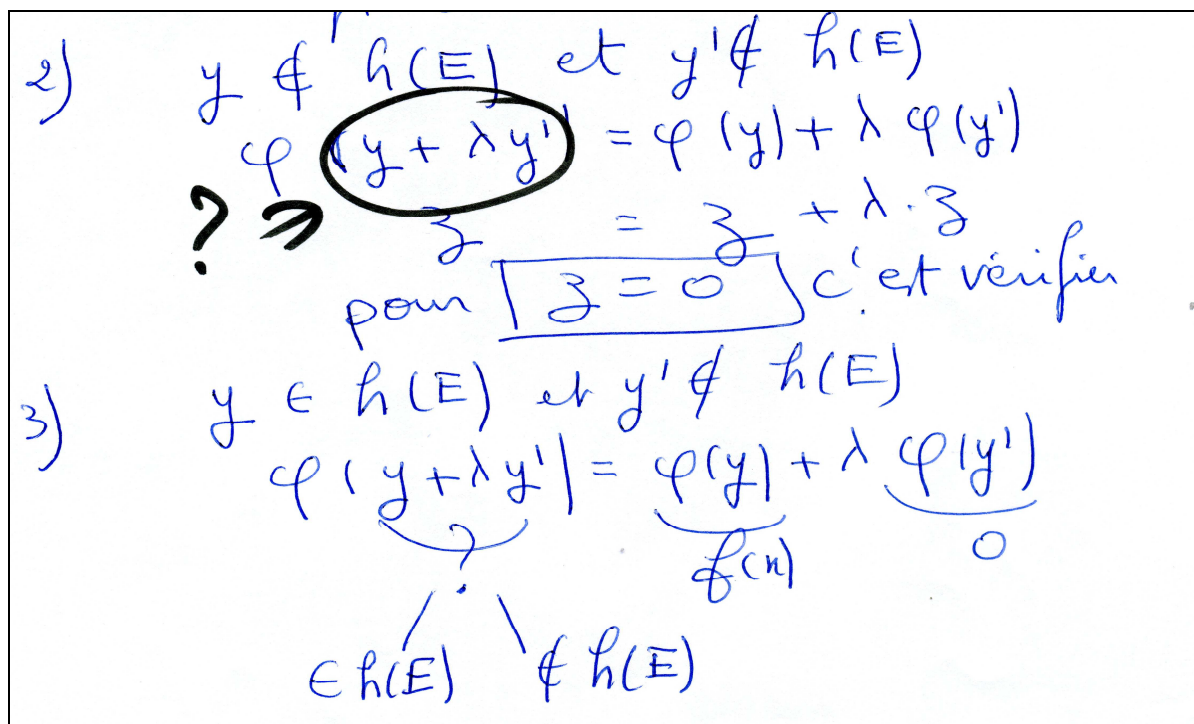 2) y ∉ h(E) et y' ∉ h(E)
φ (y + λ y') = φ (y) + λ φ (y')
? ⇒ z = z + λ . z
pour z = 0 c'est vérifier
3) y ∈ h(E) et y' ∉ h(E)
φ (y + λ y') = φ(y) + λ φ(y')
? f(x) 0
∈ h(E) ∉ h(E)